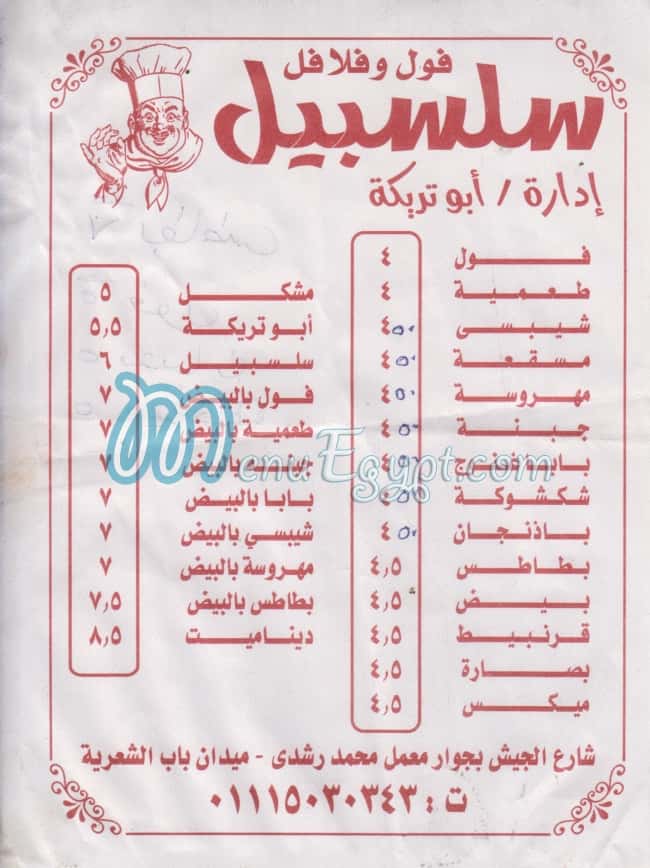 فول وفلافل
سلسبيل
إدارة / أبو تريكة
فول ٤
طعمية ٤
شيبسى ٤٥٠
مسقعة ٤٥٠
مهروسة ٤٥٠
جبنة ٤٥٠
بابا غنوج ٤٥٠
شكشوكة ٤٥٠
باذنجان ٤٥٠
بطاطس ٤,٥
بيض ٤,٥
قرنبيط ٤,٥
بصارة ٤,٥
ميكس ٤,٥
مشكل ٥
أبو تريكة ٥,٥
سلسبيل ٦
فول بالبيض ٧
طعمية بالبيض ٧
جبنه بالبيض ٧
بابا بالبيض ٧
شيبسي بالبيض ٧
مهروسة بالبيض ٧
بطاطس بالبيض ٧,٥
ديناميت ٨,٥
MenuEgypt.com
شارع الجيش بجوار معمل محمد رشدى - ميدان باب الشعرية
ت : ٠١١١٥٠٣٠٣٤٣